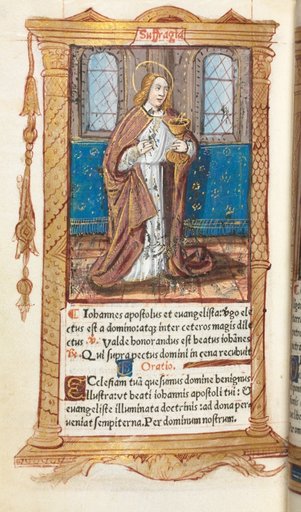 Suffragia
Iohannes apostolus et euangelista: v̄go ele
ctus est a domino: atq̄ inter ceteros magis dile
ctus ℣. Valde honorandus est beatus iohānes
℟. Qui supra pectus domini in cena recubuit
Oratio.
Ecclesiam tuā quesumus domine benignus
illustra: vt beati iohannis apostoli tui:
euangeliste illuminata doctrinis: ad dona per
ueniat sempiterna. Per dominum nostrum.